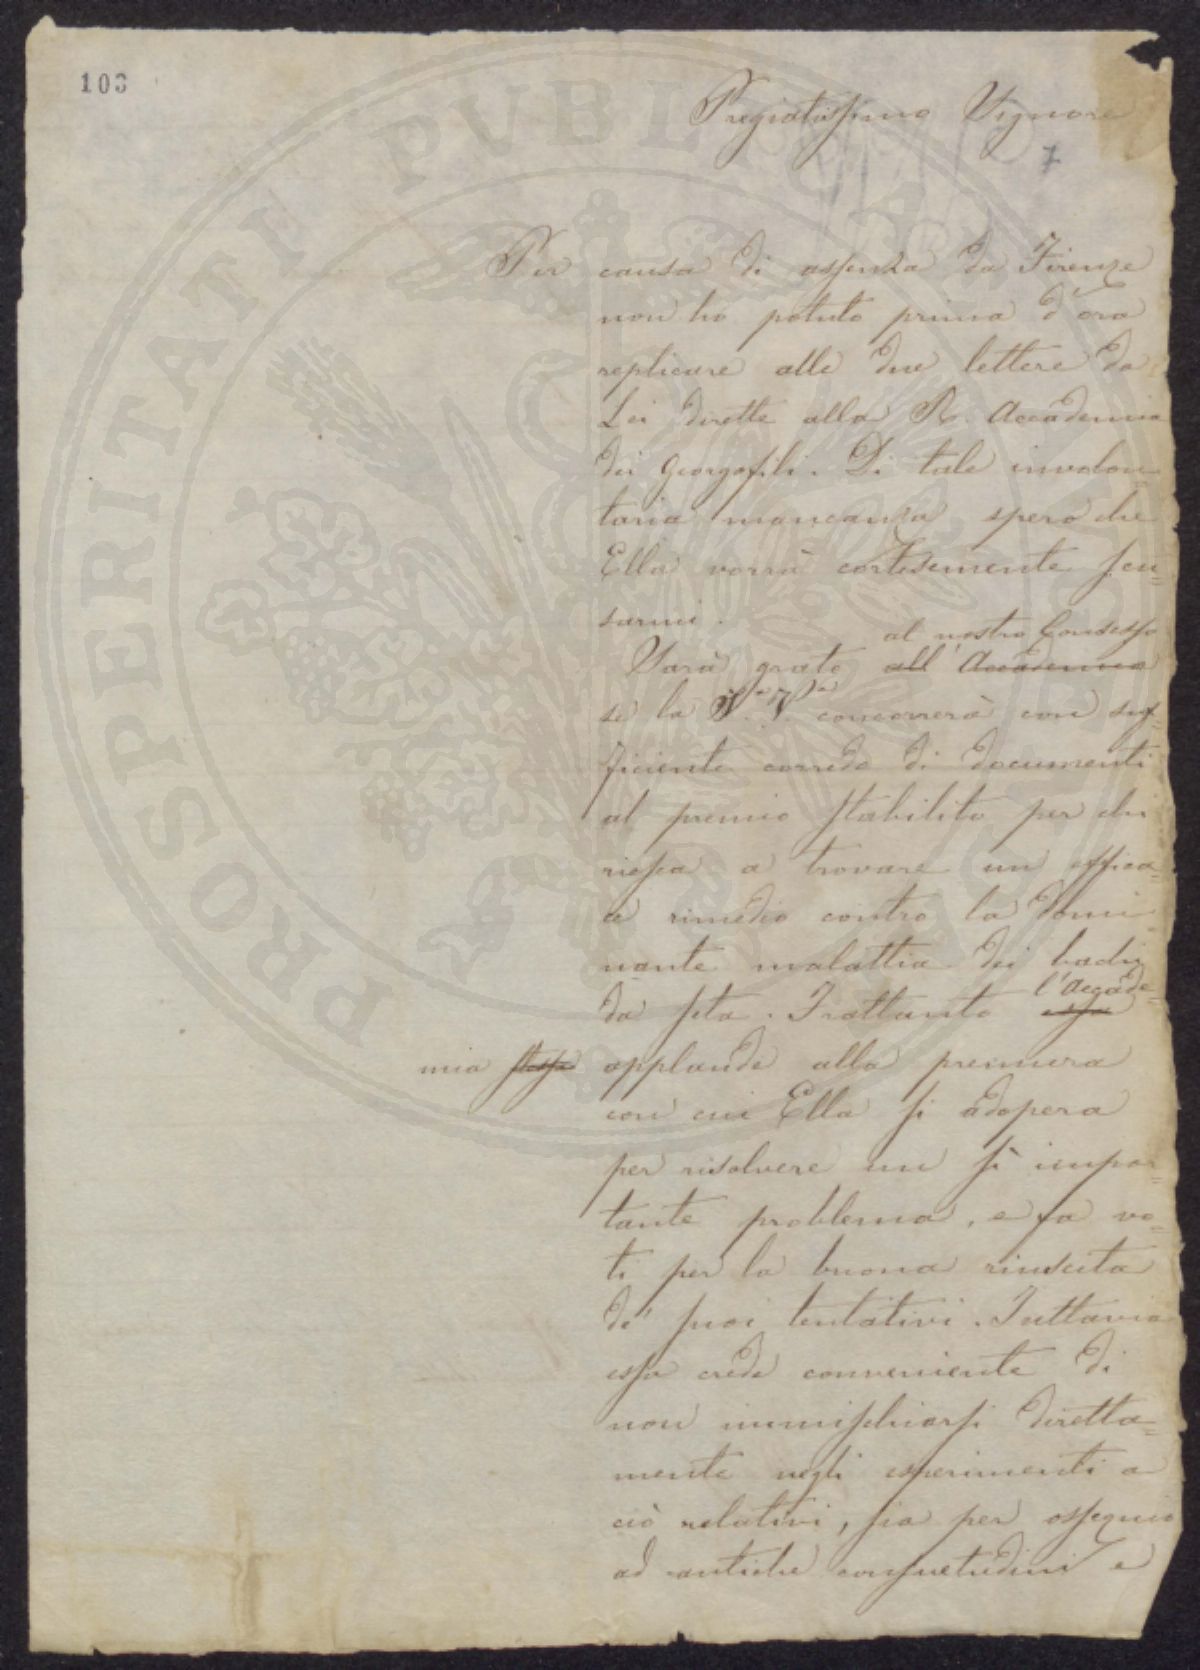 103
Pregiatissimo Signore
7
Per causa di assenza da Firenze
non ho potuto prima d'ora
replicare alle due lettere da
Lei dirette alla R. Accademia
dei Georgofili. Di tale involon=
taria mancanza spero che
Ella vorrà cortesemente scu=
sarmi.
al nostro Consesso
Sarà grato all'Accademia
se la S.a V.a concorrerà con suf=
ficiente corredo di documenti
al premio stabilito per chi
riesca a trovare un effica=
ce rimedio contro la domi
nante malattia dei bachi
da seta. Frattanto essa l'Accade=
mia stessa applaude alla premura
con cui Ella si adopera
per risolvere un sì impor=
tante problema, e fa vo=
ti per la buona riuscita
de' suoi tentativi. Tuttavia
essa crede conveniente di
non immischiarsi diretta=
mente negli esperimenti a
ciò relativi, sia per ossequio
ad antiche consuetudini e
PROSPERITATI PVBLICAE